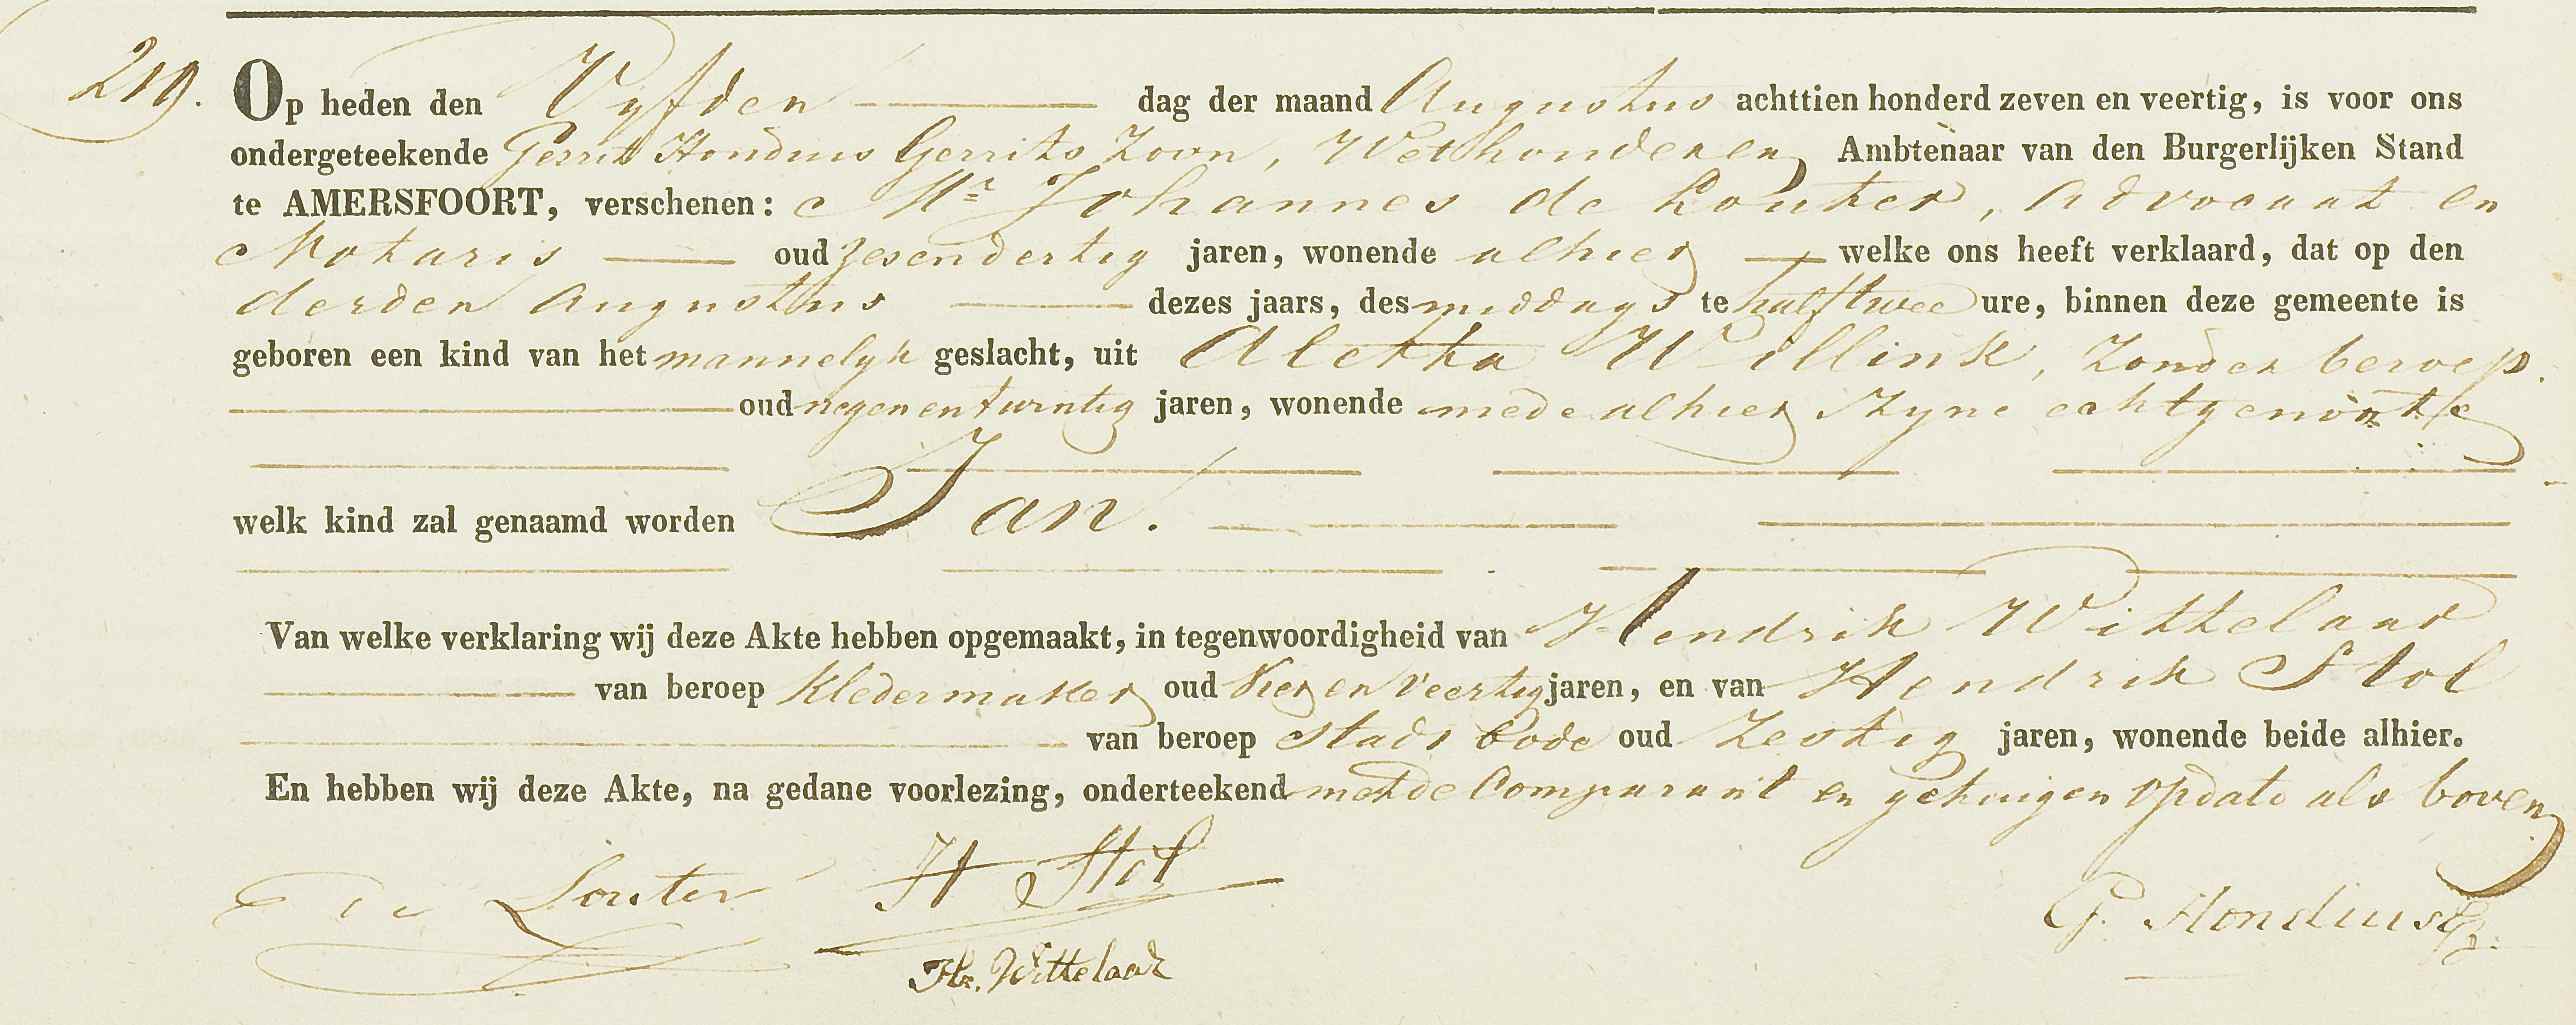 219. Op heden den Vyfden dag der maand Augustus achttien honderd zeven en veertig, is voor ons
ondergeteekende Gerrit Hondius Gerrits Zoon, Wethouder en Ambtenaar van den Burgerlijken Stand
te AMERSFOORT, verschenen: Mr Johannes de Louter, Advocaat en
Notaris oud zesendertig jaren, wonende alhier welke ons heeft verklaard, dat op den
derden Augustus dezes jaars, des middags te half twee ure, binnen deze gemeente is
geboren een kind van het mannelyk geslacht, uit Aletta Willink, Zonder beroep.
oud negen en twintig jaren, wonende mede alhier Zyne echtgenoote
welk kind zal genaamd worden Jan.
Van welke verklaring wij deze Akte hebben opgemaakt, in tegenwoordigheid van Hendrik Wittelaar
van beroep Kledermaker oud Vier en Veertig jaren, en van Hendrik Stol
van beroep stads bode oud Zestig jaren, wonende beide alhier.
En hebben wij deze Akte, na gedane voorlezing, onderteekend met de Comparant en getuigen op dato als boven
De Louter H Stol G. Hondius Gz.
Hk. Wittelaar